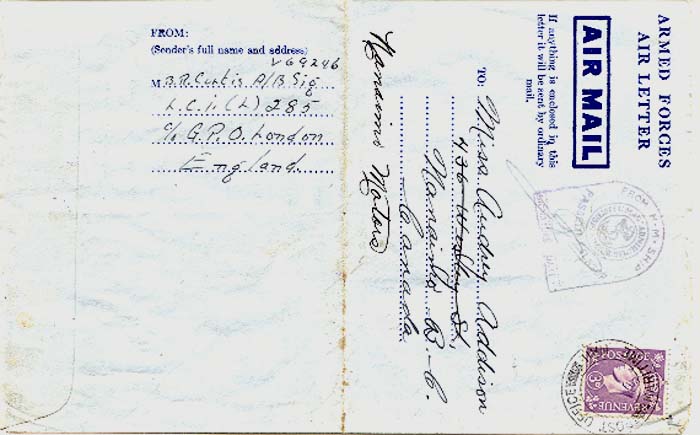 FROM:
(Sender's full name and address)
V69246
M B.R. Curtis A/B Sig
L.C.I.(L) 285
c/o G.P.O. London
England
ARMED FORCES
AIR LETTER
AIR MAIL
If anything is enclosed in this
letter it will be sent by ordinary
mail.
TO:
Miss Audrey Addison
436 Wesley St.,
Nanaimo B-C.
Canada.
Nanaimo Motors
FROM H.M. SHIP
POSTAGE
REVENUE
POST OFFICE